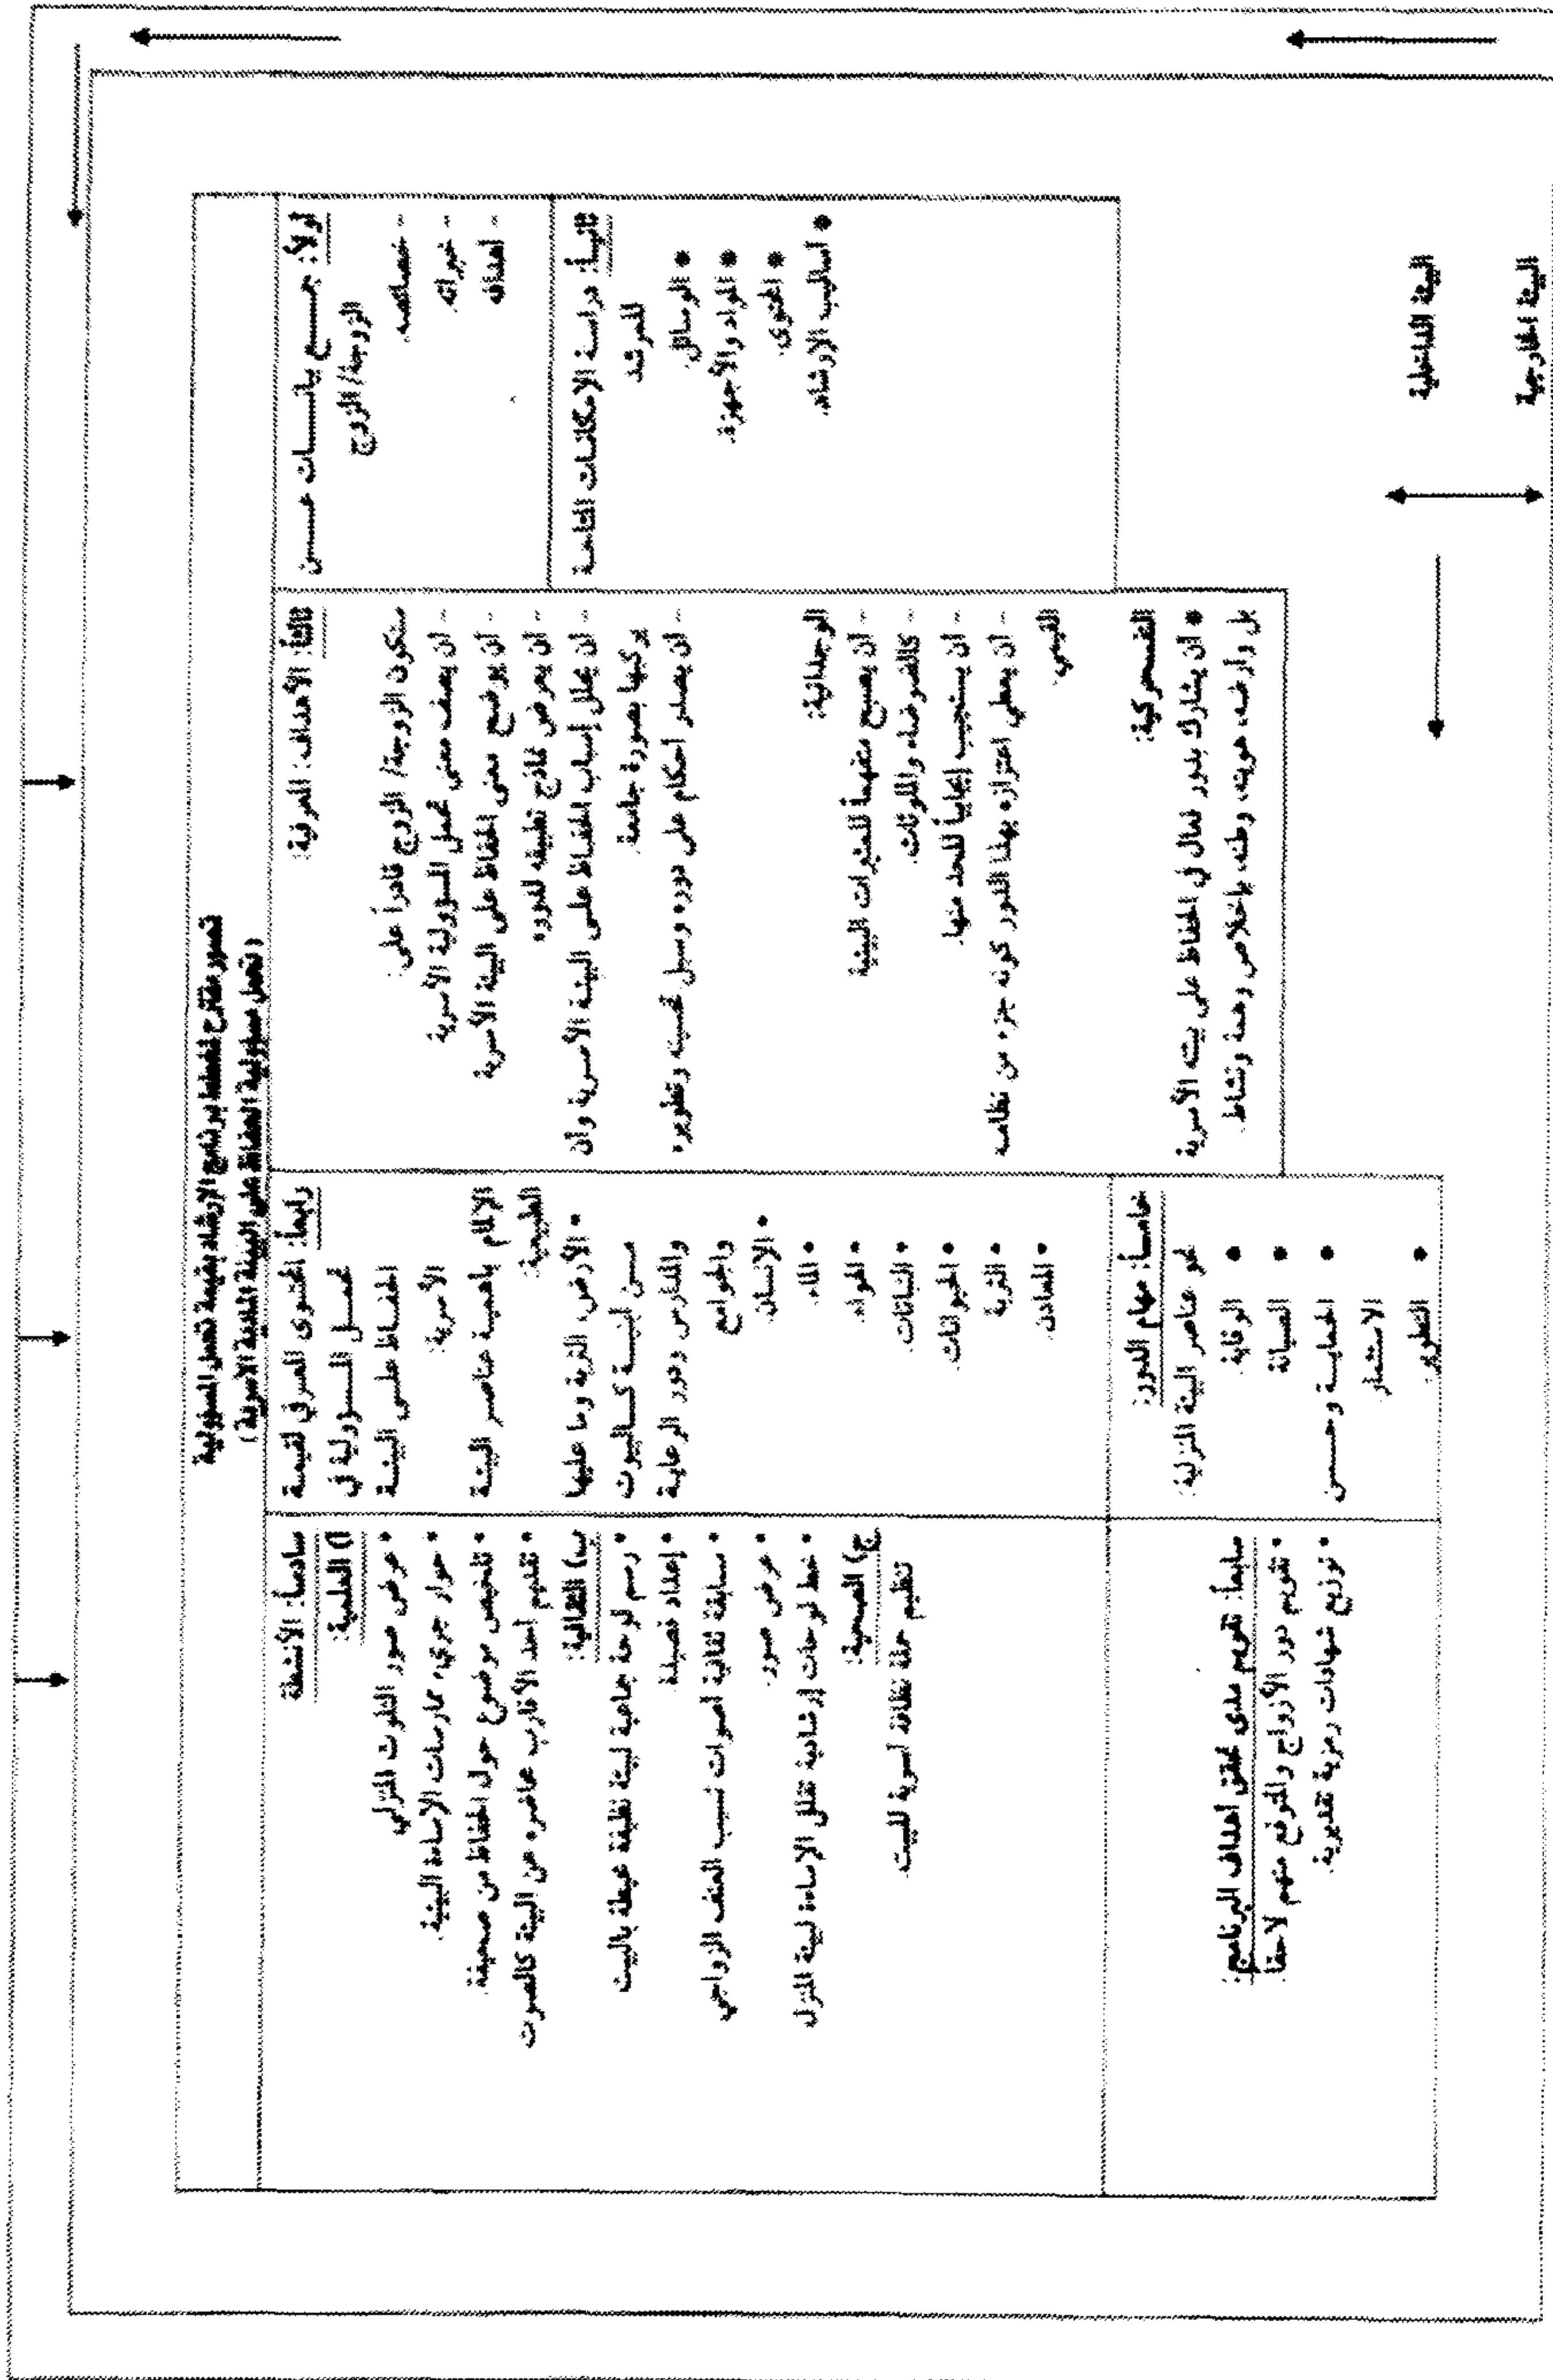 تصور مقترح لمخطط برنامج الإرشاد بقيمة تحمل المسؤولية
( تحمل مسؤولية الحفاظ على البيئة المادية الأسرية )
أولاً: جمع بيانات عن
الزوجة/ الزوج
- خصائصه.
- خبراته.
- أهدافه
ثانياً: دراسة الإمكانات المتاحة
للمرشد
• الوسائل.
• المواد والأجهزة.
• المحتوى.
• أساليب الإرشاد.
ثالثاً: الأهداف: المعرفية:
ستكون الزوجة/ الزوج قادراً على:
- أن يصف معنى تحمل المسؤولية الأسرية
- أن يوضح معنى الحفاظ على البيئة الأسرية
- أن يعرض نماذج تطبيقه لدوره
- أن يحلل إسباب الحفاظ على البيئة الأسرية وأن
يركبها بصورة جامعة.
- أن يصدر أحكام على دوره وسبل تحسينه وتطويره
الوجدانية:
- أن يصبح متفهماً للمتغيرات البيئية
- كالضوضاء والملوثات.
- أن يستجيب إيجابياً للحد منها.
- أن يعطي اعتزازه بهذا الدور كونه جزء من نظامه
القيمي.
النفسحركية:
• أن يشارك بدور فعال في الحفاظ على بيته الأسرية
بل وأرضه، هويته، وطنه بإخلاص وهمة ونشاط.
رابعاً: المحتوى المعرفي لقيمة
تحمل المسؤولية في
الحفاظ على البيئة
الأسرية:
الإلمام بأهمية عناصر البيئة
الطبيعية:
• الأرض، التربة وما عليها
من أبنية كالبيوت
والمدارس ودور الرعاية
والجوامع
• الإنسان.
• الماء.
• الهواء.
• النباتات.
• الحيوانات.
• التربة
• المعادن.
خامساً: مهام الدور:
نحو عناصر البيئة المنزلية:
• الوقاية.
• الصيانة
• الحماية وحسن
الاستثمار
• التطوير.
سادساً: الأنشطة
أ) العلمية:
• عرض صور التلوث المنزلي
• حوار جريء، ممارسات الإساءة البيئية.
• تلخيص موضوع حول الحفاظ من صحيفة.
• تقديم أحد الأقارب محاضره عن البيئة كالصوت
ب) الثقافية:
• رسم لوحة جماعية لبيئة نظيفة محيطة بالبيت
• إعداد قصيدة
• سابقة ثقافية أصوات تسبب العنف الزواجي
• عرض صور.
• خط لوحات إرشادية تقلل الإساءة لبيئة المنزل
ج) الصحية:
تنظيم حملة نظافة أسرية للبيت.
سابعاً: تقويم مدى تحقق أهداف البرنامج:
• تقويم دور الأزواج والمتوقع منهم لاحقاً.
• توزيع شهادات رمزية تقديرية.
البيئة الداخلية
البيئة الخارجية